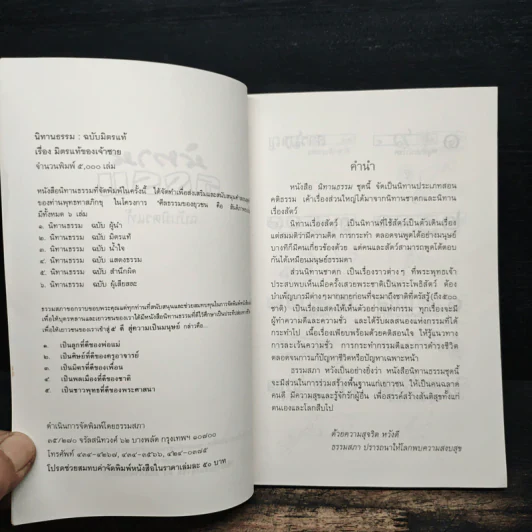 นิทานธรรม : ฉบับมิตรแท้
เรื่อง มิตรแท้ของเจ้าชาย
จำนวนพิมพ์ ๕,๐๐๐ เล่ม
หนังสือนิทานธรรมที่จัดพิมพ์ในครั้งนี้ ได้จัดทำเพื่อส่งเสริมและสนับสนุน
ของท่านพุทธทาสภิกขุ ในโครงการ "ศีลธรรมของยุวชน คือ
มีทั้งหมด ๖ เล่ม
๑. นิทานธรรม ฉบับ ผู้นำ
๒. นิทานธรรม ฉบับ มิตรแท้
๓. นิทานธรรม ฉบับ น้ำใจ
๔. นิทานธรรม ฉบับ แสดงธรรม
๕. นิทานธรรม ฉบับ สำนึกผิด
๖. นิทานธรรม ฉบับ ผู้เสียสละ
ธรรมสภาขอกราบขอบพระคุณแด่ทุกท่านที่สนับสนุนและช่วยสมทบทุนในการจัดพิมพ์
เพื่อให้บุตรหลานและเยาวชนของเราได้มีหนังสือนิทานธรรมที่มี
เพื่อให้เยาวชนของเราเข้าสู่ ๕ ดี สู่ความเป็นมนุษย์ กล่าวคือ...
๑ เป็นลูกที่ดีของพ่อแม่
๒ เป็นศิษย์ที่ดีของครูอาจารย์
๓ เป็นมิตรที่ดีของเพื่อน
๔ เป็นพลเมืองที่ดีของชาติ
๕ เป็นชาวพุทธที่ดีของพระศาสนา
ดำเนินการจัดพิมพ์โดยธรรมสภา
๓๕/๒๗๐ จรัลสนิทวงศ์ ๖๒ บางพลัด กรุงเทพฯ ๑๐๗๐๐
โทรศัพท์ ๔๓๔-๔๒๖๗, ๔๓๔-๓๕๖๖, ๔๒๔-๐๓๗๕
โปรดช่วยสมทบค่าจัดพิมพ์หนังสือในราคาเล่มละ ๕๐ บาท
คำนำ
หนังสือ นิทานธรรม ชุดนี้ จัดเป็นนิทานประเภทสอน
คติธรรม เค้าเรื่องส่วนใหญ่ได้มาจากนิทานชาดกและนิทาน
เรื่องสัตว์
นิทานเรื่องสัตว์ เป็นนิทานที่ใช้สัตว์เป็นตัวเดินเรื่อง
แต่สมมติว่ามีความคิด การกระทำ ตลอดจนพูดได้อย่างมนุษย์
บางทีก็มีคนเกี่ยวข้องด้วย แต่คนและสัตว์สามารถพูดโต้ตอบ
กันได้เหมือนมนุษย์ธรรมดา
ส่วนนิทานชาดก เป็นเรื่องราวต่างๆ ที่พระพุทธเจ้า
ประสบพบเห็นเมื่อครั้งเสวยพระชาติเป็นพระโพธิสัตว์ ต้อง
บำเพ็ญบารมีต่างๆมากมายก่อนที่จะมาถึงชาติที่ตรัสรู้(ถึง๕๐๐
ชาติ) เป็นเรื่องแสดงให้เห็นตัวอย่างแห่งกรรม ทุกเรื่องจะมี
ผู้ทำความดีและความชั่ว และได้รับผลสนองแห่งกรรมที่ได้
กระทำไป เนื้อเรื่องเพียบพร้อมด้วยคติสอนใจ ให้รู้แนวทาง
การละเว้นความชั่ว การกระทำกรรมดีและการดำรงชีวิต
ตลอดจนการแก้ปัญหาชีวิตหรือปัญหาเฉพาะหน้า
ธรรมสภา หวังเป็นอย่างยิ่งว่า หนังสือนิทานธรรมชุดนี้
จะมีส่วนในการร่วมสร้างพื้นฐานแก่เยาวชน ให้เป็นคนฉลาด
คนดี มีความสุขและรู้จักรักผู้อื่น เพื่อสรรค์สร้างสันติสุขทั้งแก่
ตนเองและโลกสืบไป
ด้วยความสุจริต หวังดี
ธรรมสภา ปรารถนาให้โลกพบความสงบสุข